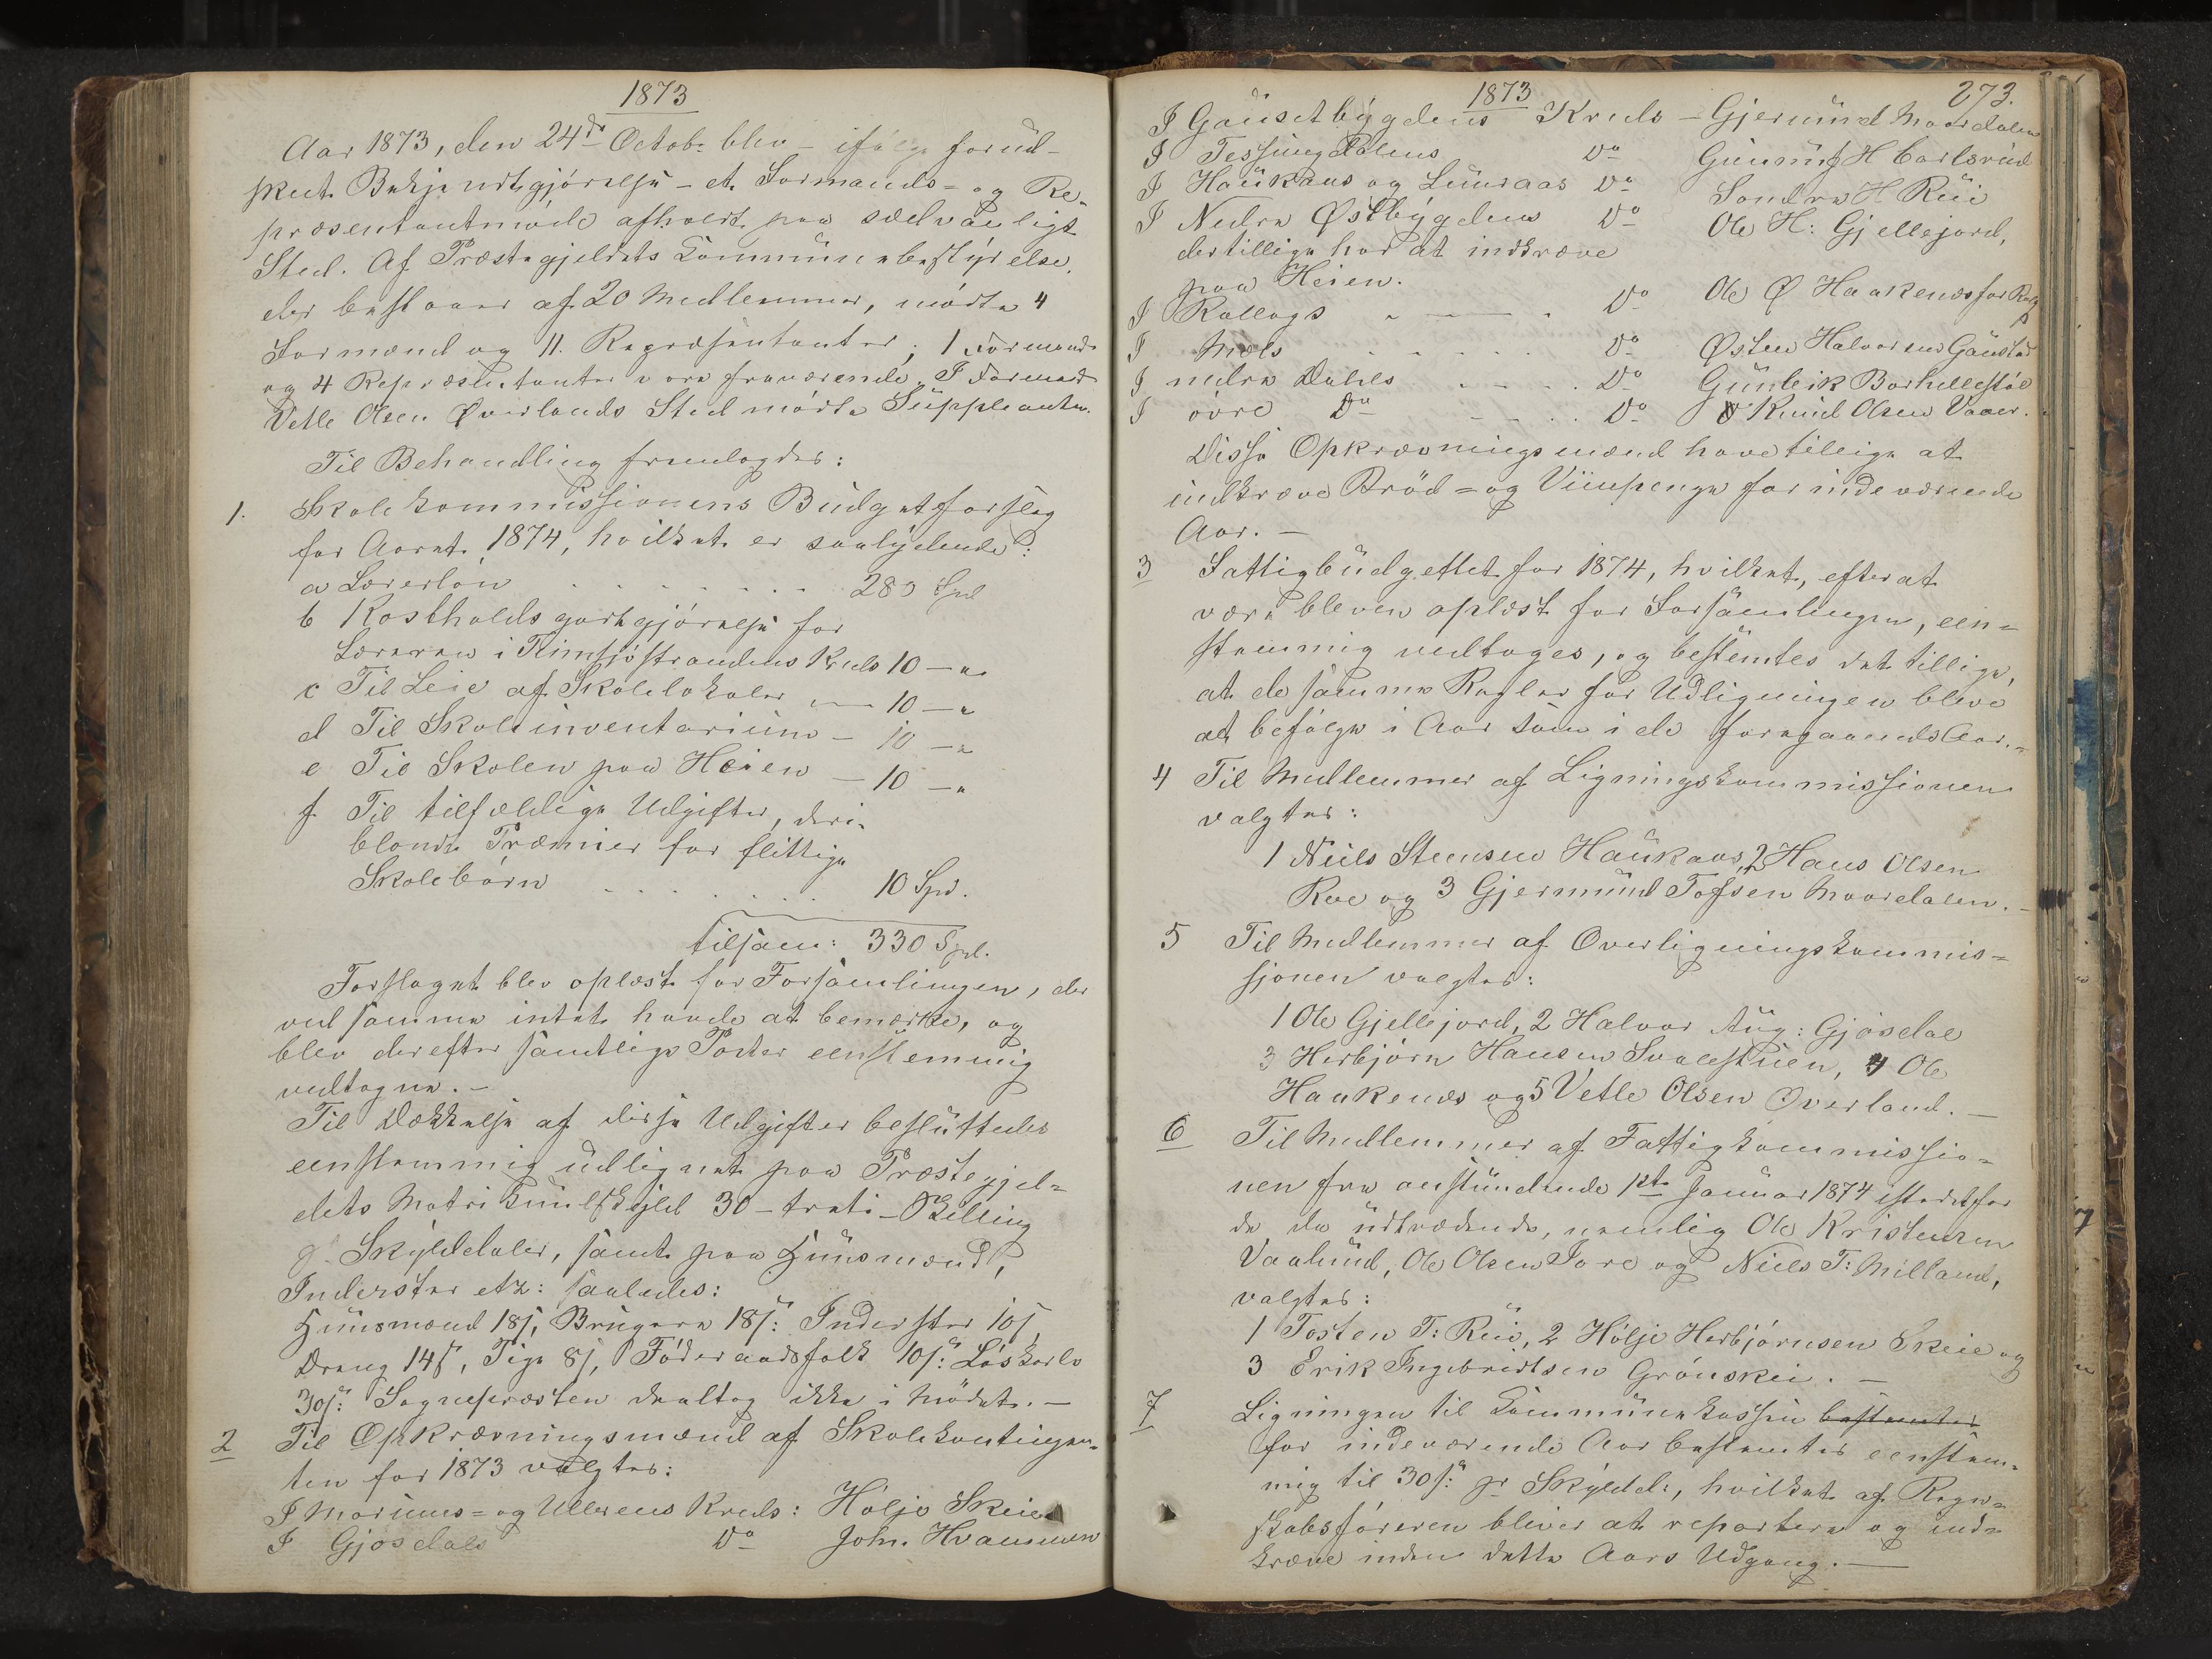 1873
Aar 1873, den 24de Octob: blev – ifølge forud-
skeet Bekjendtgjørelse – et Formands- og Re-
præsentantmøde afholdt paa sædvanligt
Sted. Af Præstegjeldets Kommunebestyrelse,
der bestaaer af 20 Medlemmer, mødte 4
Formænd og 11. Repræsentanter; 1 Formand
og 4 Repræsentanter vare fraværende. I Formand
Vetle Olsen Øverlands Sted mødte Suppleanten.
Til Behandling fremlagdes:
1. Skolekommissionens Budgetforslag
for Aaret 1874, hvilket er saalydende:
a Lærerløn . . . . . . . 280 Spd
b Kostholdsgodtgjørelse for
Læreren i Timsjøstrandens Kreds 10 – "
c Til Leie af Skolelokaler – 10 – "
d Til Skoleinventarium – 10 – "
e Til Skolen paa Heien – 10 – "
f Til tilfældige Udgifter, deri-
blandt Præmier for flittige
Skolebørn . . . . . . 10 Spd.
tilsam: 330 Spd.
Forslaget blev oplæst for Forsamlingen, der
ved samme intet havde at bemærke, og
blev derefter samtlige Poster eenstemmig
vedtagne. –
Til Dækkelse af disse Udgifter besluttedes
eenstemmig udlignet paa Præstegjel-
dets Matrikuulskyld 30 – treti – Skilling
pr. Skylddaler, samt paa Huusmænd,
Inderster etz: saaledes:
Huusmænd 18 s, Brugere 18 s: Inderster 10 s,
Dreng 14 s, Tige 8 s, Føderaadsfolk 10 s: Løskarle
30 s: Sognepræsten deeltog ikke i Mødet. –
2 Til Opkrævningsmænd af Skolekontingen-
ten for 1873 valgtes:
I Mariums- og Ullerens Kreds: Høljo Skeie
I Gjøsdals Do John. Hvammen
1873 273.
I Gausetbygdens Kreds – Gjermund Maardalen
I Tessungdalens Do Gunnuf H Carlsrud
I Haukaas og Luuraas Do Sondre H Rui
I Nedre Østbygdens Do Ole H: Gjellejord,
dertillige har at indkræve
paa Heien.
I Rollags " — " Do Ole Ø Haakenæs for Rollag
I Mæls . . . . . Do Østen Halvorsen Gaustad
I nedre Dahls . . . . Do Gunleik Borhellestøl
I øvre Do – – . . Do Knud Olsen Vaaer.
Disse Opkrævningsmænd have tillige at
indkræve Brød- og Viinpenge for indeværende
Aar. –
3 Fattigbudgettet for 1874, hvilket, efter at
være bleven oplæst for Forsamlingen, een-
stemmig vedtoges, og bestemtes det tillige,
at de samme Regler for Udligningen bleve
at befølge i Aar som i de foregaaende Aar. –
4 Til Medlemmer af Ligningskommissionen
valgtes:
1 Niels Steensen Haukaas, 2 Hans Olsen
Roe og 3 Gjermund Tofsen Maardalen. –
5 Til Medlemmer af Overligningskommis-
sjonen valgtes:
1 Ole Gjellejord, 2 Halvor Aug: Gjøsdal
3 Herbjørn Hansen Svalestuen, 4 Ole
Haakenæs og 5 Vetle Olsen Øverland. –
6 Til Medlemmer af Fattigkommissio-
nen fra anstundende 1ste Januar 1874 istedetfor
de da udtrædende, nemlig Ole Kristensen
Vaalund, Ole Olsen Jore og Niels T: Milland,
valgtes:
1 Tosten T: Rui, 2 Høljo Herbjørnsen Skeie og
3 Erik Ingebrethsen Grønskei. –
7 Ligningen til Kommunekassen bestemtes
for indeværende Aar bestemtes eenstem-
mig til 30 s: pr Skyldd:, hvilket af Regn-
skabsføreren bliver at repartere og ind-
kræve inden dette Aars Udgang. –